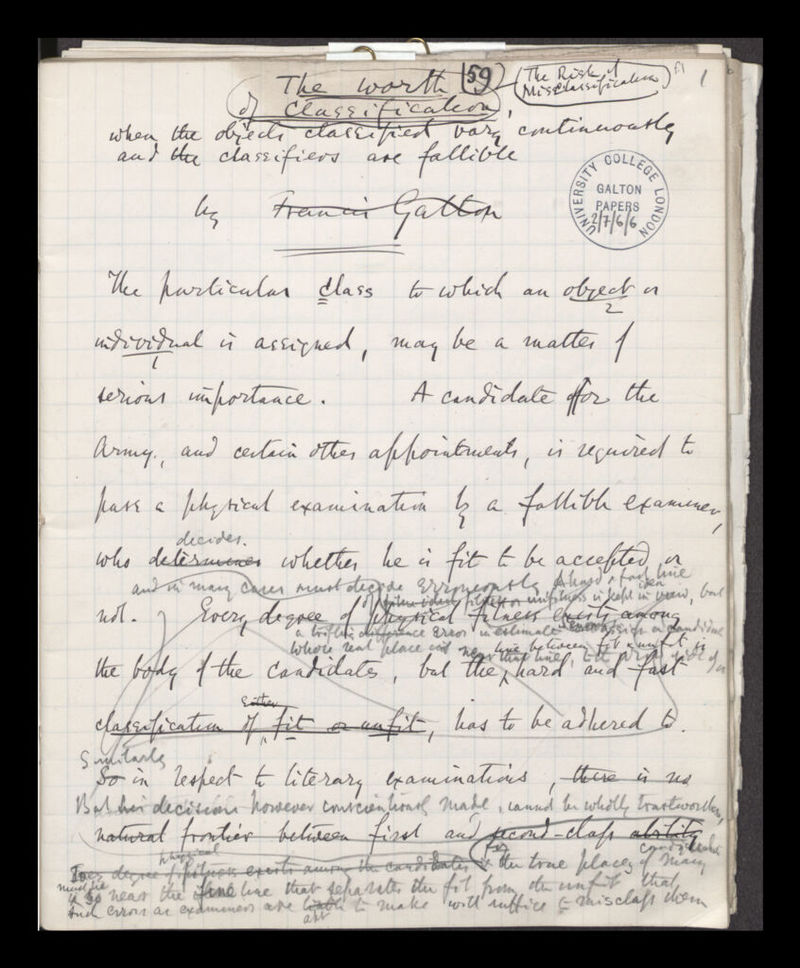 The worth 59 (The Risk of
of Classification, Misclassification) f1 1
when the objects classified vary continuously
and the classifiers are fallible
by Francis Galton
UNIVERSITY COLLEGE LONDON
GALTON
PAPERS
2/7/6/6
The particular class to which an object or
2
individual is assigned, may be a matter of
1
serious importance. A candidate for the
Army, and certain other appointments, is required to
pass a physical examination by a fallible examiner,
decides.
who determines whether he is fit to be accepted or
and in many cases must decide erroneously A hard & fast line
of fitness or unfitness is kept in view, but
not. Every degree of physical fitness exists among
a trifling difference error in estimate
whose real place is near that line, to the wrong side of it
line between fit & unfit is
the body of the candidates, but the hard and fast
Either
classification of fit or unfit, has to be adhered to.
Similarly
So in respect to literary examinations, there is no
But his decisions however conscientiously made, cannot be wholly trustworthy,
natural frontier between first and second-class ability
for candidates
physical
degree of fitness exists among the candidates & the true places of many
must lie
so near the line that separates the fit from the unfit that
such errors as examiners are liable to make will suffice to misclass them
apt